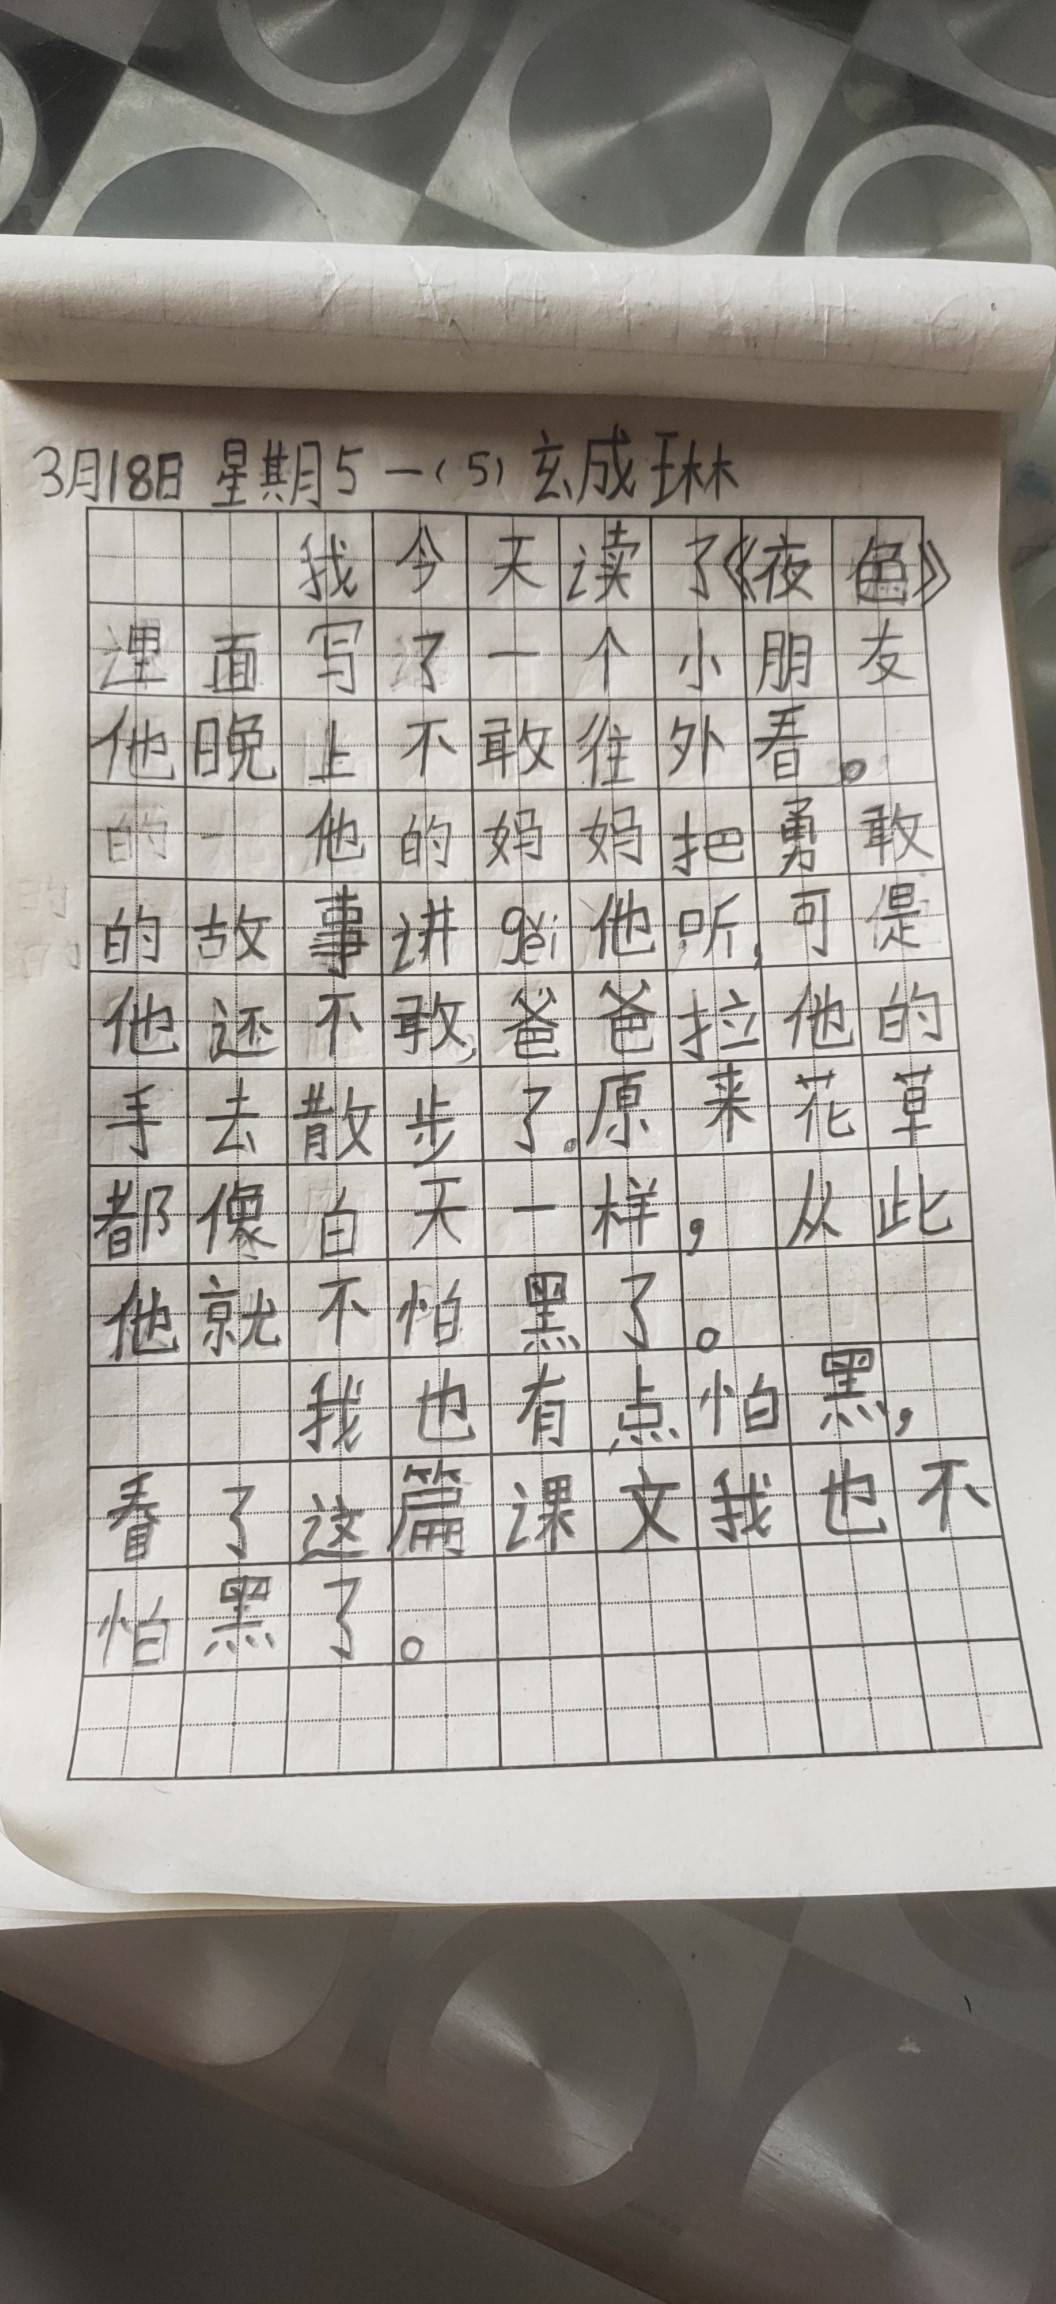 3月18日 星期5 一(5) 玄成琳
我今天读了《夜色》
里面写了一个小朋友
他晚上不敢往外看。
他的妈妈把勇敢
的故事讲gěi他听,可是
他还不敢,爸爸拉他的
手去散步了。原来花草
都像白天一样,从此
他就不怕黑了。
我也有点怕黑,
看了这篇课文我也不
怕黑了。